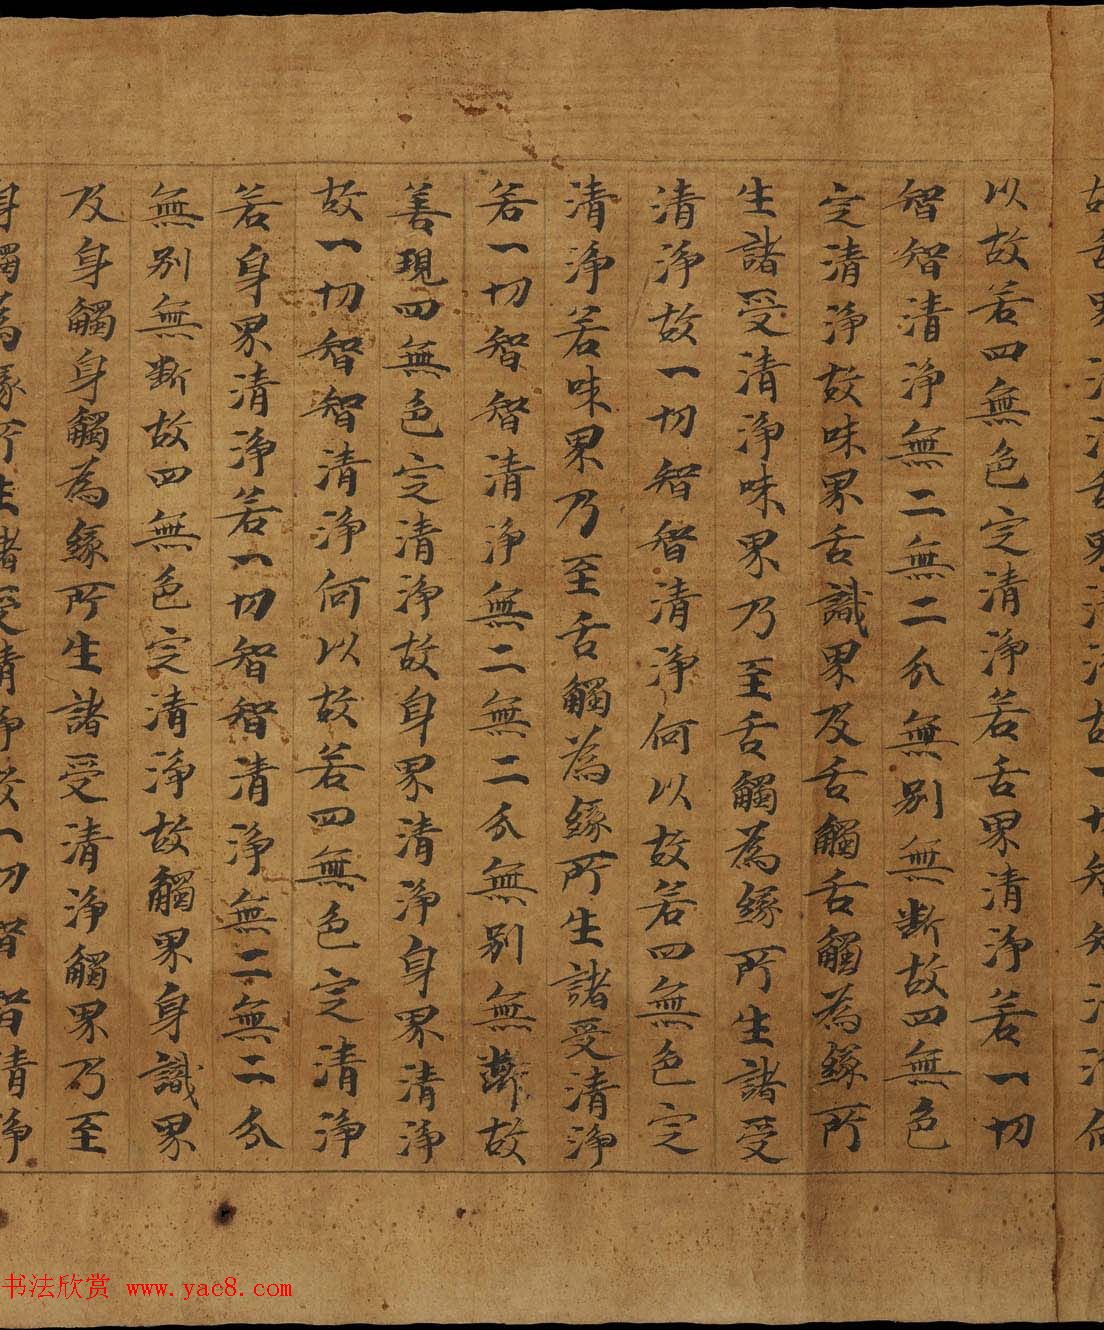 故舌界清淨舌界清淨故一切智智清淨何
以故若四無色定清淨若舌界清淨若一切
智智清淨無二無二分無別無斷故四無色
定清淨故味界舌識界及舌觸舌觸為緣所
生諸受清淨味界乃至舌觸為緣所生諸受
清淨故一切智智清淨何以故若四無色定
清淨若味界乃至舌觸為緣所生諸受清淨
若一切智智清淨無二無二分無別無斷故
善現四無色定清淨故身界清淨身界清淨
故一切智智清淨何以故若四無色定清淨
若身界清淨若一切智智清淨無二無二分
無別無斷故四無色定清淨故觸界身識界
及身觸身觸為緣所生諸受清淨觸界乃至
身觸為緣所生諸受清淨故一切智智清淨
书法欣赏 www.yac8.com